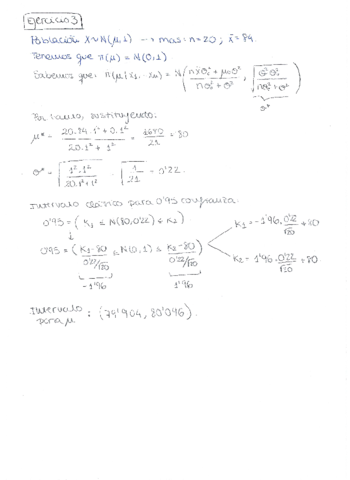 Ejercicio 3
Población X~N(μ,1) → m.a.s. n=20 ; x̄=84
Tenemos que π(μ)=N(0,1)
Sabemos que: π(μ|x1...xn) = N( (n x̄ σ0² + μ0 σ²)/(nσ0²+σ²) , √(σ²σ0²/(nσ0²+σ²)) )
σ*
Por tanto, sustituyendo:
μ* = (20·84·1²+0·1²)/(20·1²+1²) = 1680/21 = 80
σ* = √(1²·1²/(20·1²+1²)) = √(1/21) = 0'22
Intervalo clásico para 0'95 confianza:
0'95 = (K1 ≤ N(80,0'22) ≤ K2)
↓
0'95 = ( (K1-80)/(0'22/√20) ≤ N(0,1) ≤ (K2-80)/(0'22/√20) )
-1'96 1'96
K1 = -1'96 · 0'22/√20 + 80
K2 = 1'96 · 0'22/√20 + 80
Intervalo para μ : (79'904, 80'096)